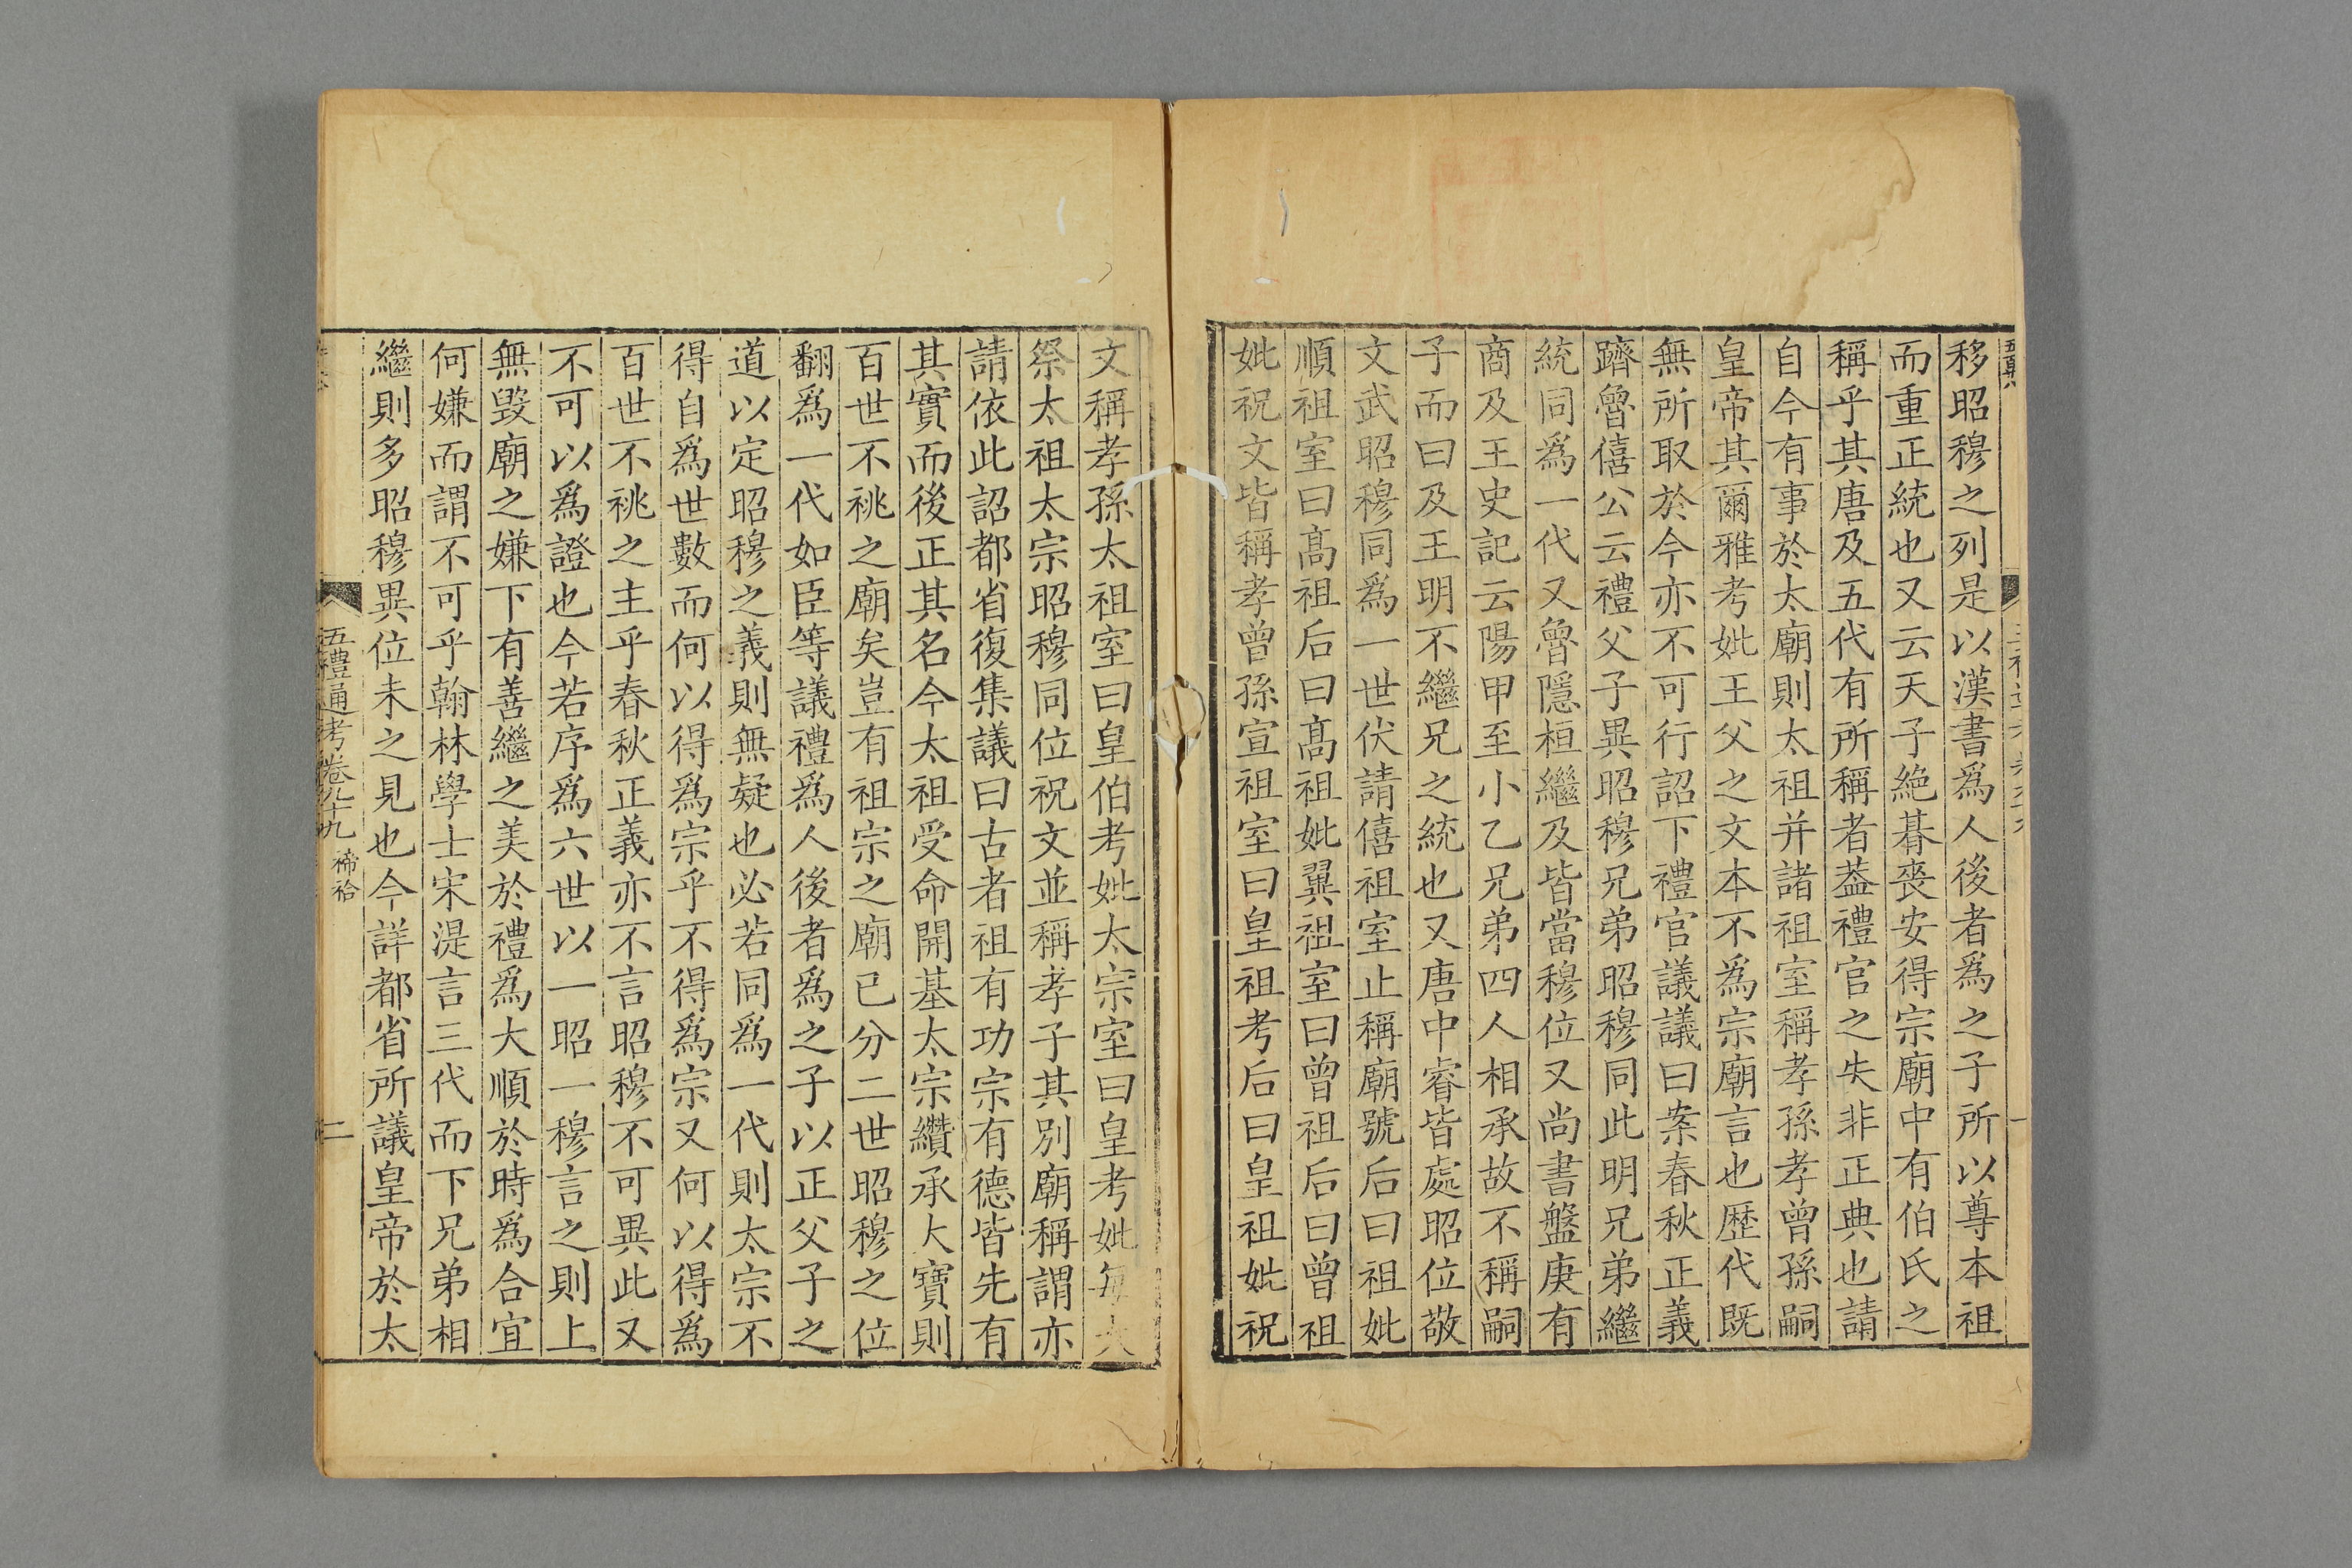 移昭穆之列是以漢書爲人後者爲之子所以尊本祖
而重正統也又云天子絶朞喪安得宗廟中有伯氏之
稱乎其唐及五代有所稱者葢禮官之失非正典也請
自今有事於太廟則太祖并諸祖室稱孝孫孝曾孫嗣
皇帝其爾雅考妣王父之文本不爲宗廟言也歴代既
無所取於今亦不可行詔下禮官議議曰案春秋正義
躋魯僖公云禮父子異昭穆兄弟昭穆同此明兄弟繼
統同爲一代又魯隱桓繼及皆當穆位又尚書盤庚有
商及王史記云陽甲至小乙兄弟四人相承故不稱嗣
子而曰及王明不繼兄之統也又唐中睿皆處昭位敬
文武昭穆同爲一世伏請僖祖室止稱廟號后曰祖妣
順祖室曰髙祖后曰髙祖妣翼祖室曰曾祖后曰曾祖
妣祝文皆稱孝曾孫宣祖室曰皇祖考后曰皇祖妣祝
文稱孝孫太祖室曰皇伯考妣太宗室曰皇考妣每大
祭太祖太宗昭穆同位祝文並稱孝子其别廟稱謂亦
請依此詔都省復集議曰古者祖有功宗有德皆先有
其實而後正其名今太祖受命開基太宗纘承大寶則
百世不祧之廟矣豈有祖宗之廟已分二世昭穆之位
翻爲一代如臣等議禮爲人後者爲之子以正父子之
道以定昭穆之義則無疑也必若同爲一代則太宗不
得自爲世數而何以得爲宗乎不得爲宗又何以得爲
百世不祧之主乎春秋正義亦不言昭穆不可異此又
不可以爲證也今若序爲六世以一昭一穆言之則上
無毀廟之嫌下有善繼之美於禮爲大順於時爲合宜
何嫌而謂不可乎翰林學士宋湜言三代而下兄弟相
繼則多昭穆異位未之見也今詳都省所議皇帝於太
五禮通考卷九十九 禘祫 二